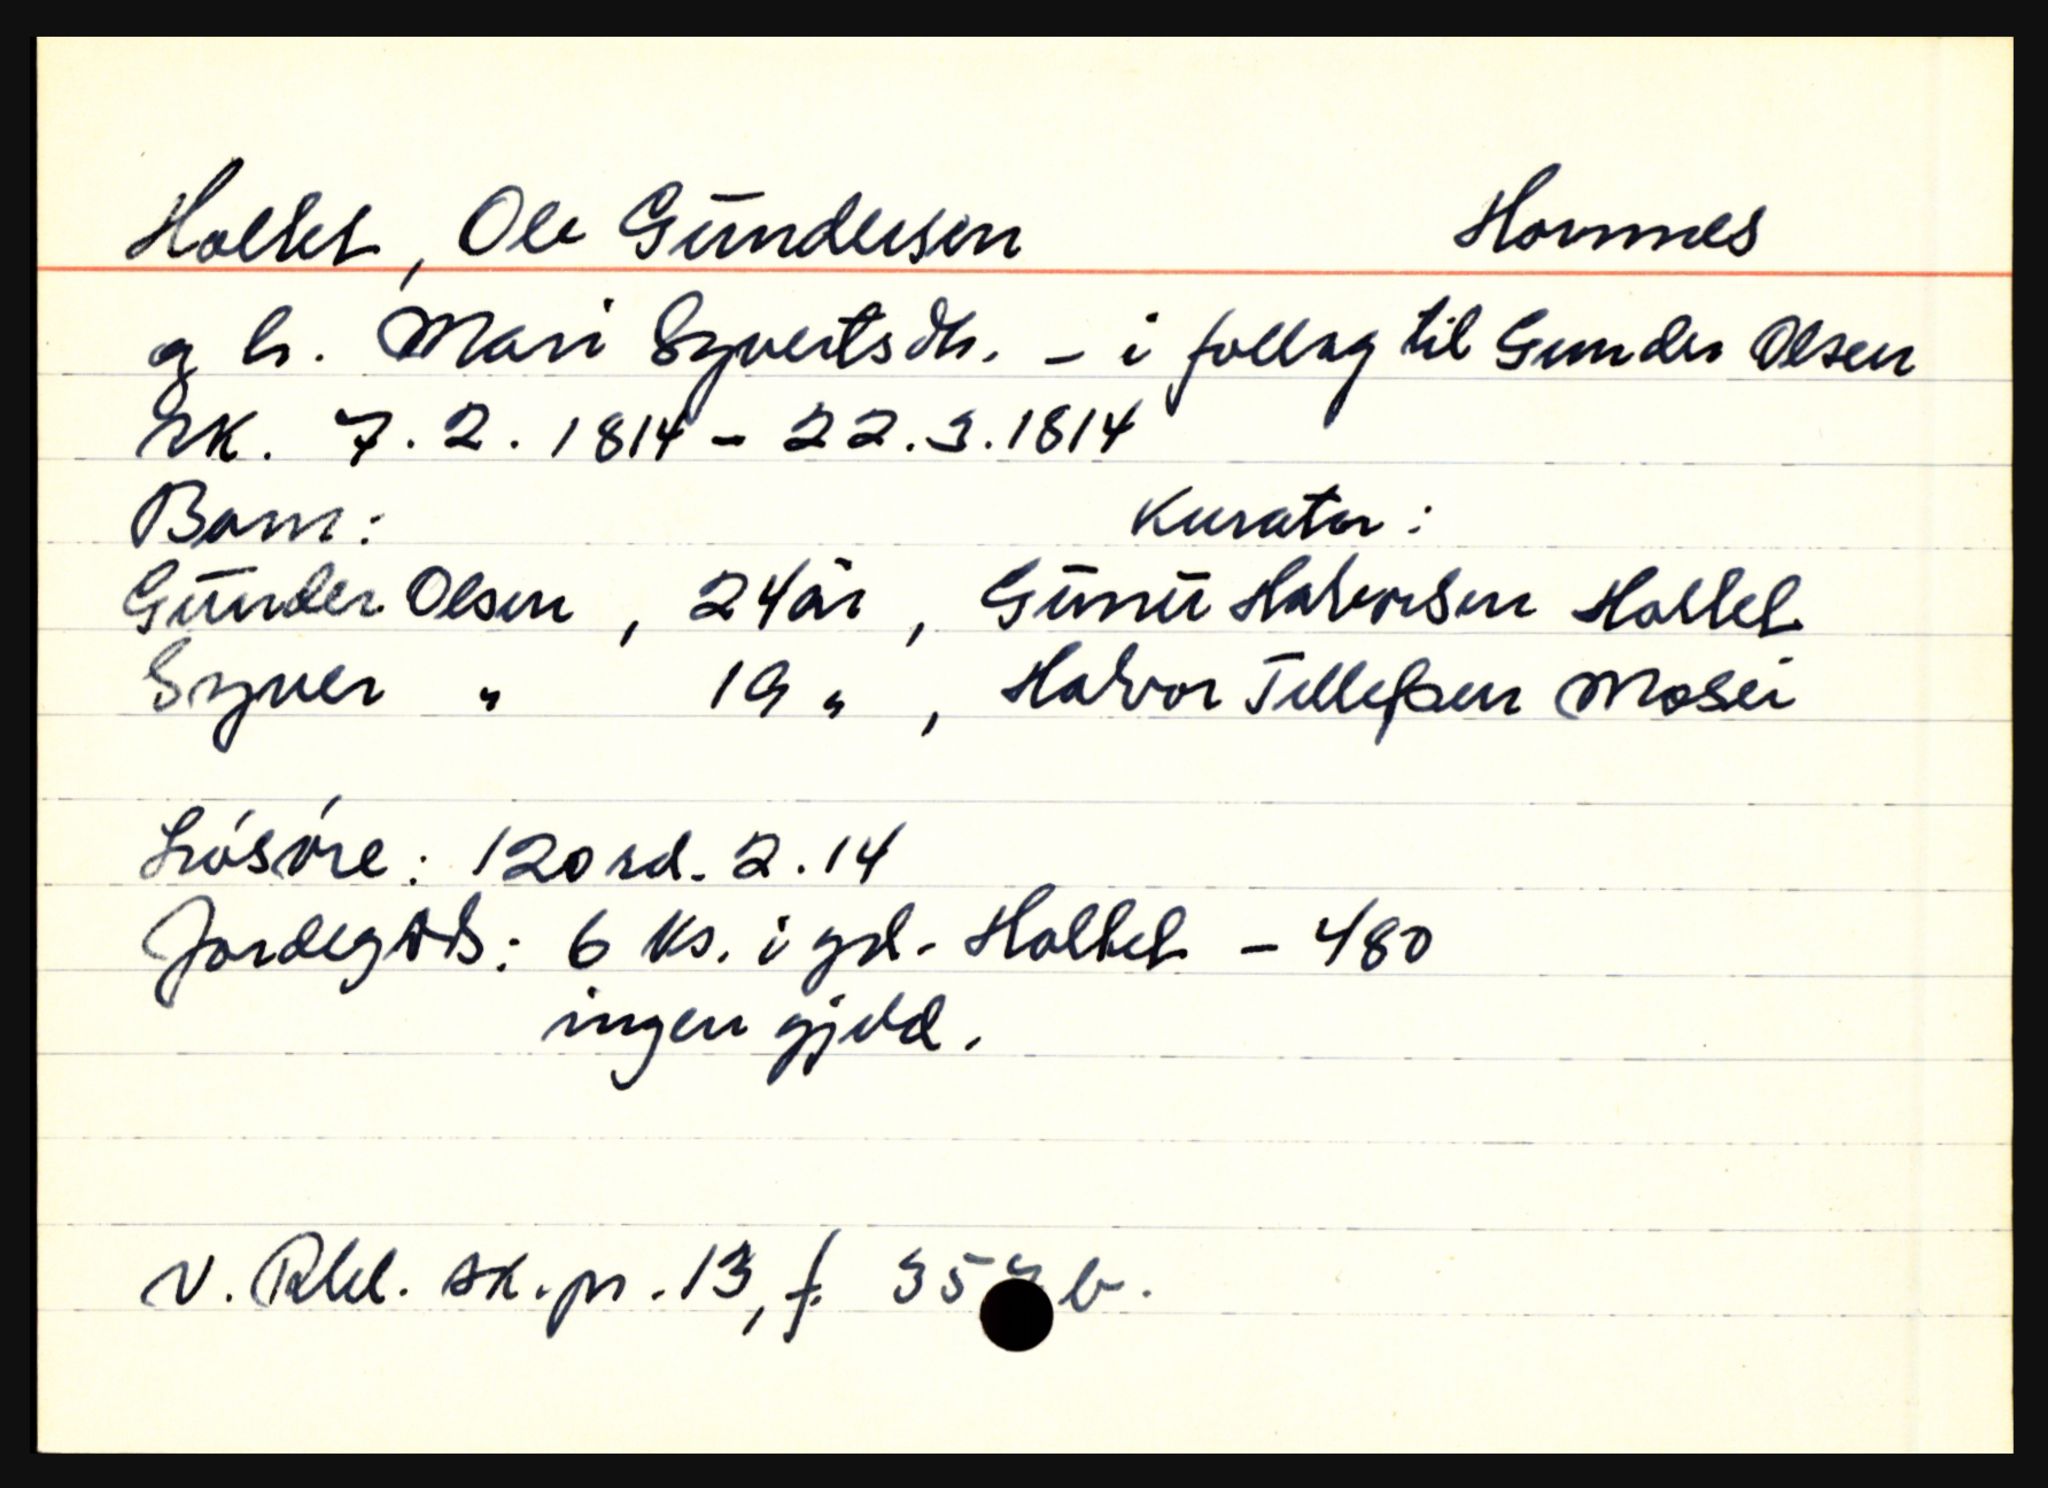 Holtet, Ole Gundersen Hornnes
g h. Mari Syvertsdtr. - i follag til Gunder Olsen
sk. 7.2.1814 - 22.3.1814
Barn: Kurator:
Gunder Olsen, 24 år, Gunu Halvorsen Holtet
Syver " 19 ", Halvor Tellefsen Mosei
Lösöre: 120 rd. 2.14
Jordegods: 6 ks. i gd. Holtet - 480
ingen gjeld.
N. Rbl. sk.pr. 13, f. 357b.